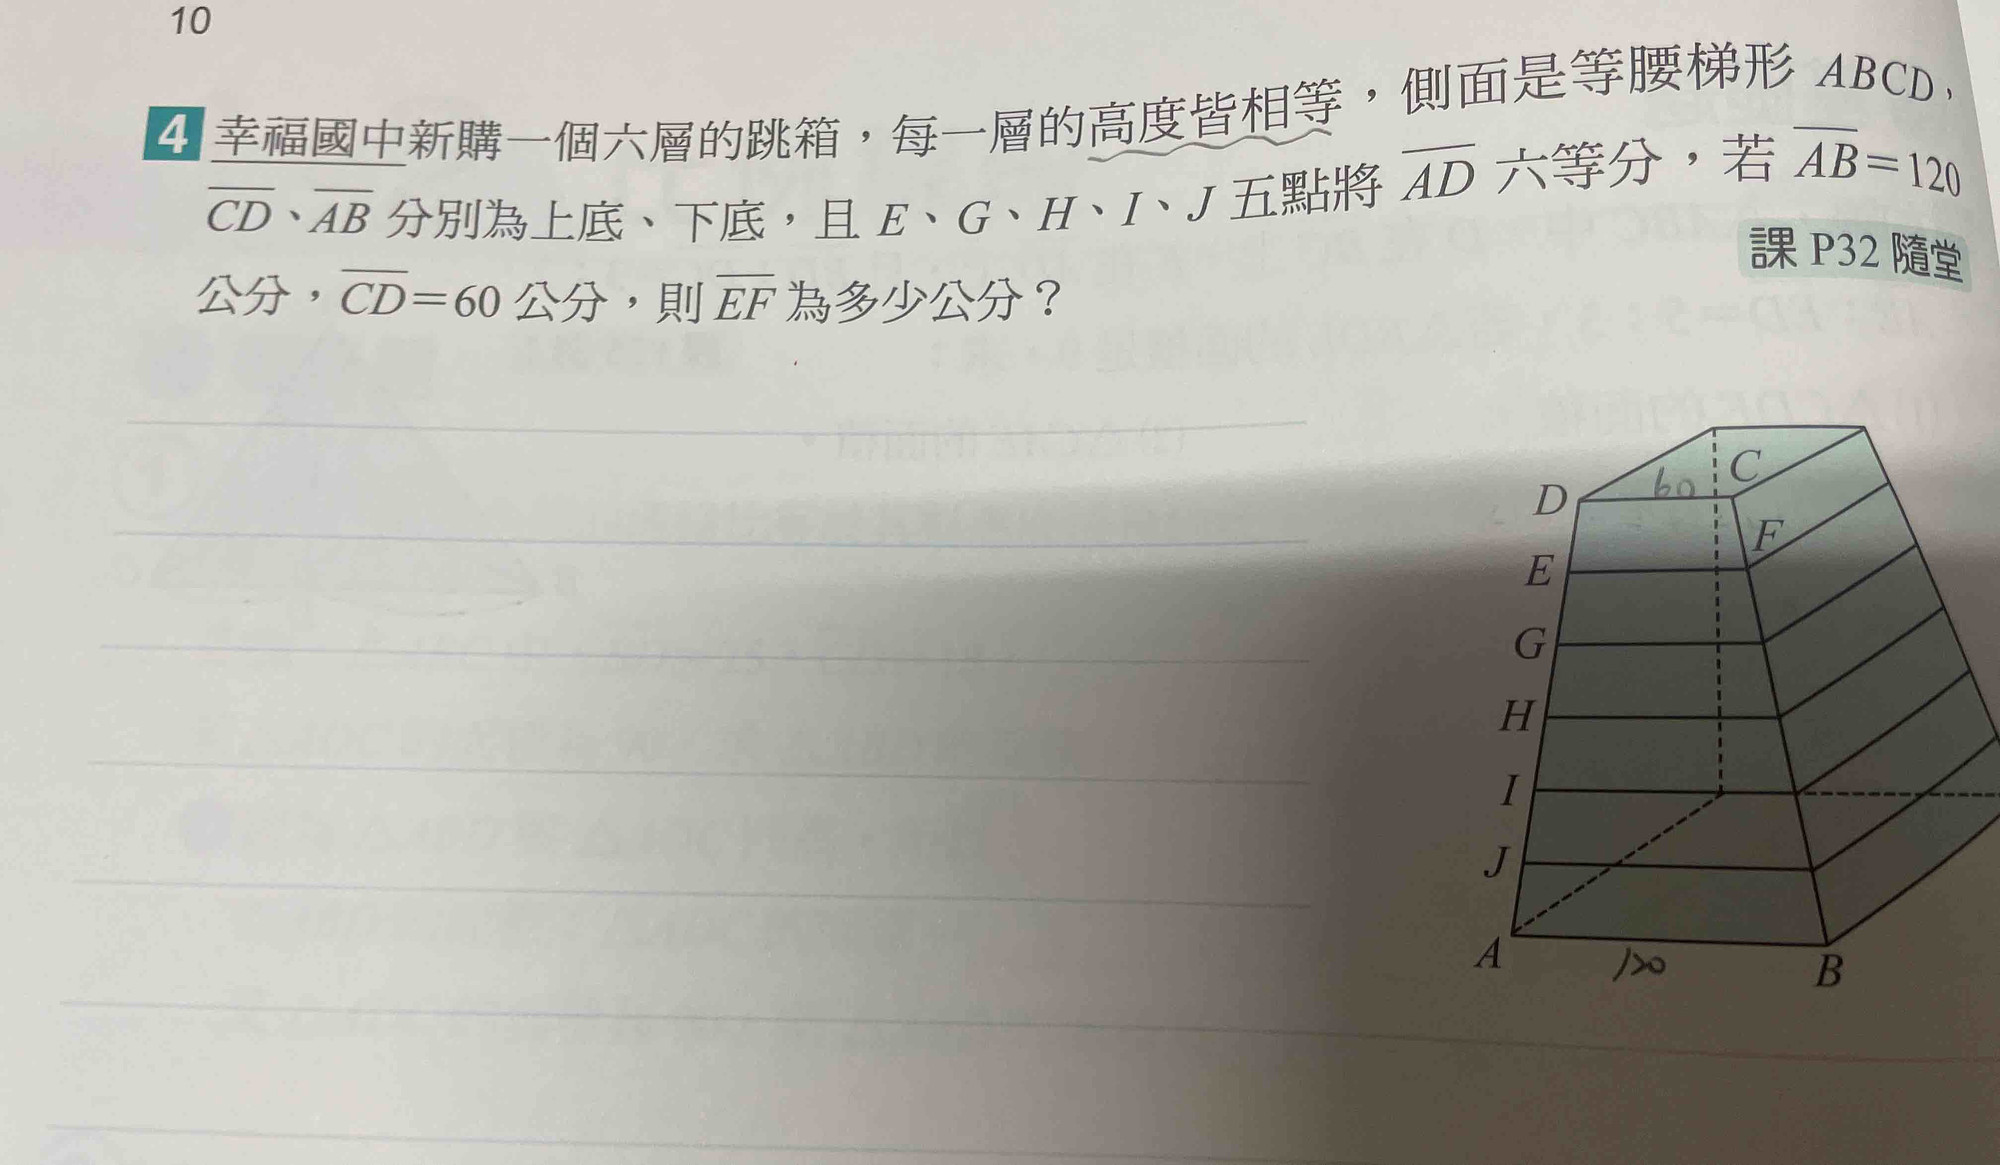 10
4 幸福國中新購一個六層的跳箱，每一層的高度皆相等，側面是等腰梯形 ABCD，
CD、AB 分別為上底、下底，且 E、G、H、I、J 五點將 AD 六等分，若 AB=120
公分，CD=60 公分，則 EF 為多少公分？
課 P32 隨堂
C
60
D
F
E
G
H
I
J
A
120
B